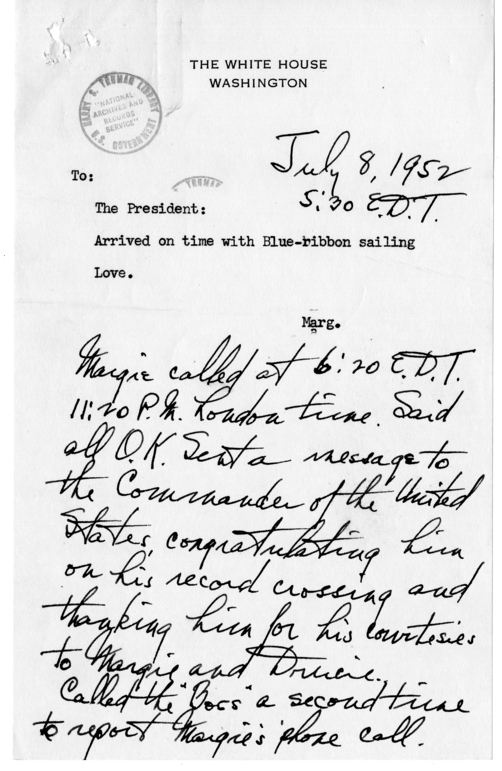 THE WHITE HOUSE
WASHINGTON
HARRY S. TRUMAN LIBRARY
"NATIONAL
ARCHIVES AND
RECORDS
SERVICE"
U.S. GOVERNMENT
July 8, 1952
5:30 E.D.T.
To:
TRUMAN
The President:
Arrived on time with Blue-ribbon sailing
Love.
Marg.
Margie called at 6:20 E.D.T.
11:20 P.M. London time. Said
all O.K. Sent a message to
the Commander of the United
States, congratulating him
on his record crossing and
thanking him for his courtesies
to Margie and Drucie.
Called the "Boss" a second time
to report Margie's phone call.